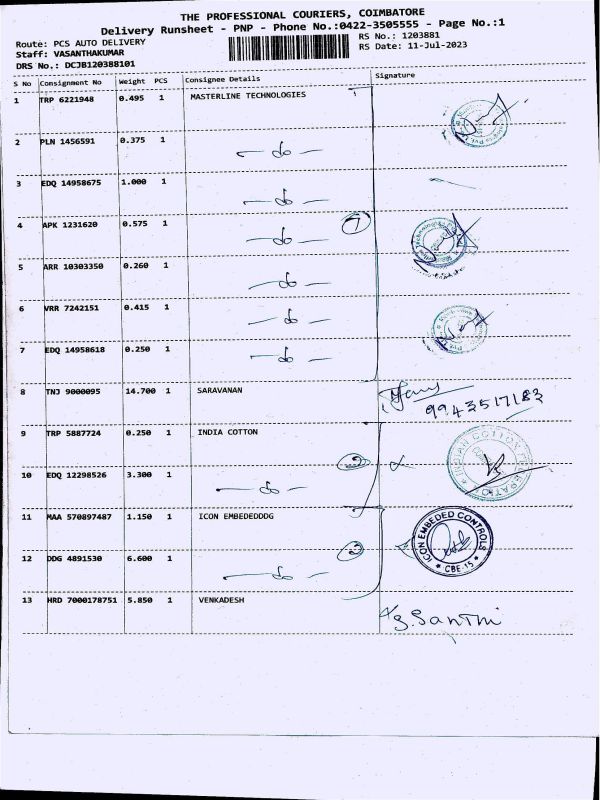 THE PROFESSIONAL COURIERS, COIMBATORE
Delivery Runsheet - PNP - Phone No.:0422-3505555 - Page No.:1
Route: PCS AUTO DELIVERY RS No.: 1203881
Staff: VASANTHAKUMAR RS Date: 11-Jul-2023
DRS No.: DCJB120388101
S No Consignment No Weight PCS Consignee Details Signature
1 TRP 6221948 0.495 1 MASTERLINE TECHNOLOGIES
2 PLN 1456591 0.375 1 — do —
3 EDQ 14958675 1.000 1 — do —
4 APK 1231620 0.575 1 — do — 7
5 ARR 10303350 0.260 1 — do —
6 VRR 7242151 0.415 1 — do —
7 EDQ 14958618 0.250 1 — do —
8 TNJ 9000095 14.700 1 SARAVANAN
9943517183
9 TRP 5887724 0.250 1 INDIA COTTON
10 EDQ 12298526 3.300 1 — do — 2
11 MAA 570897487 1.150 1 ICON EMBEDEDDDG
ICON EMBEDED CONTROLS
* CBE-15 *
12 DDG 4891530 6.600 1 — do — 2
13 HRD 7000178751 5.850 1 VENKADESH
S. Santhi